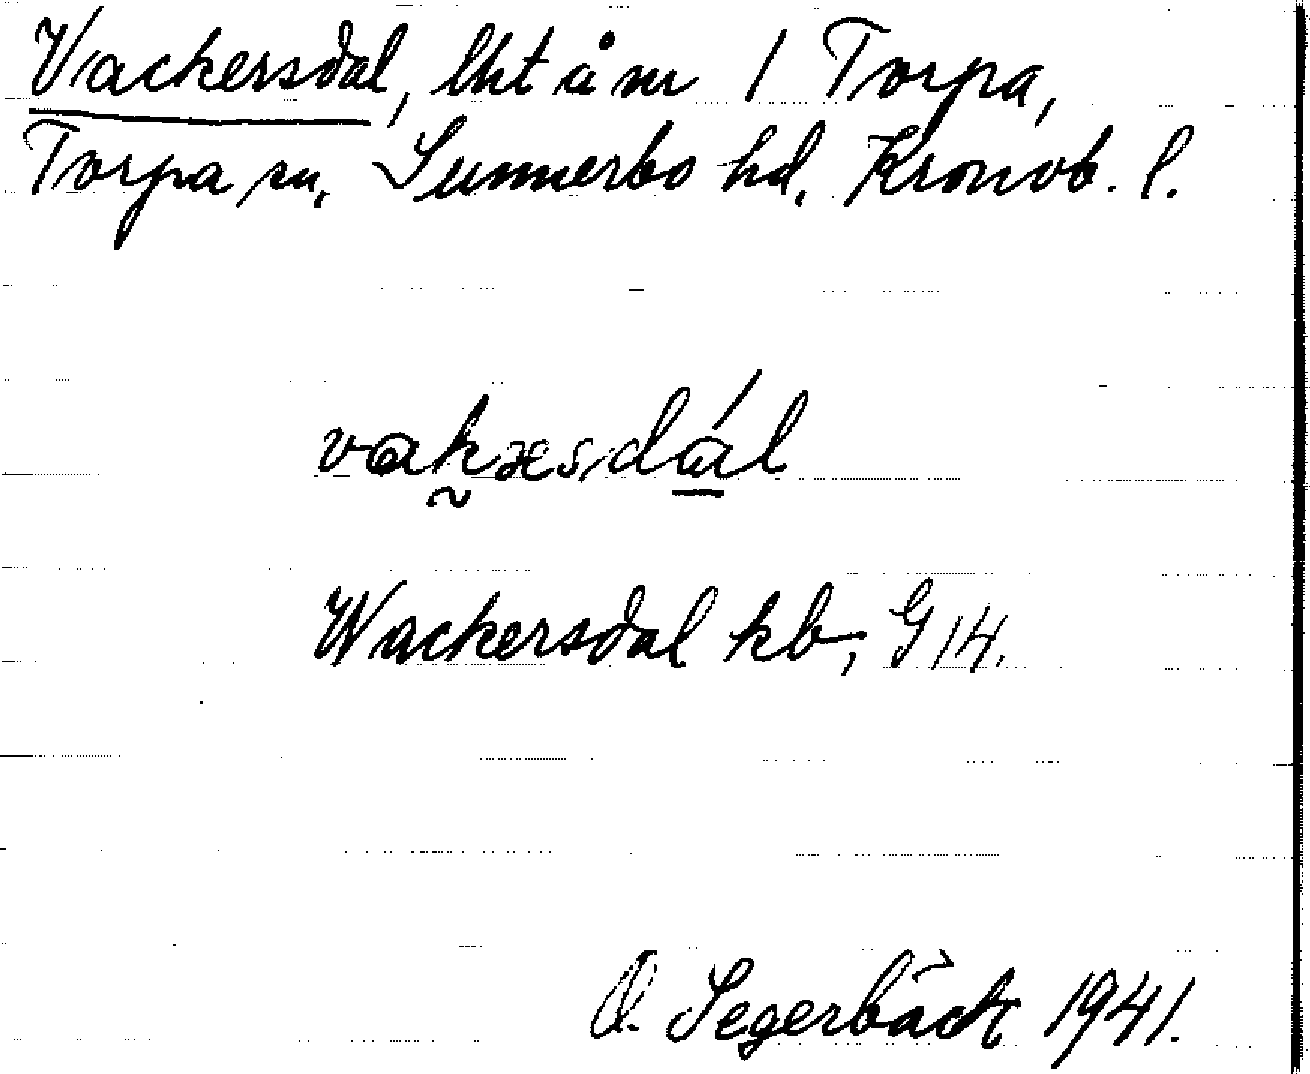 Vackersdal, lht å nr 1 Torpa,
Torpa sn, Sunnerbo hd, Kronob. l.
vakæsdál
Wackersdal kb, G 14.
O. Segerbäck 1941.